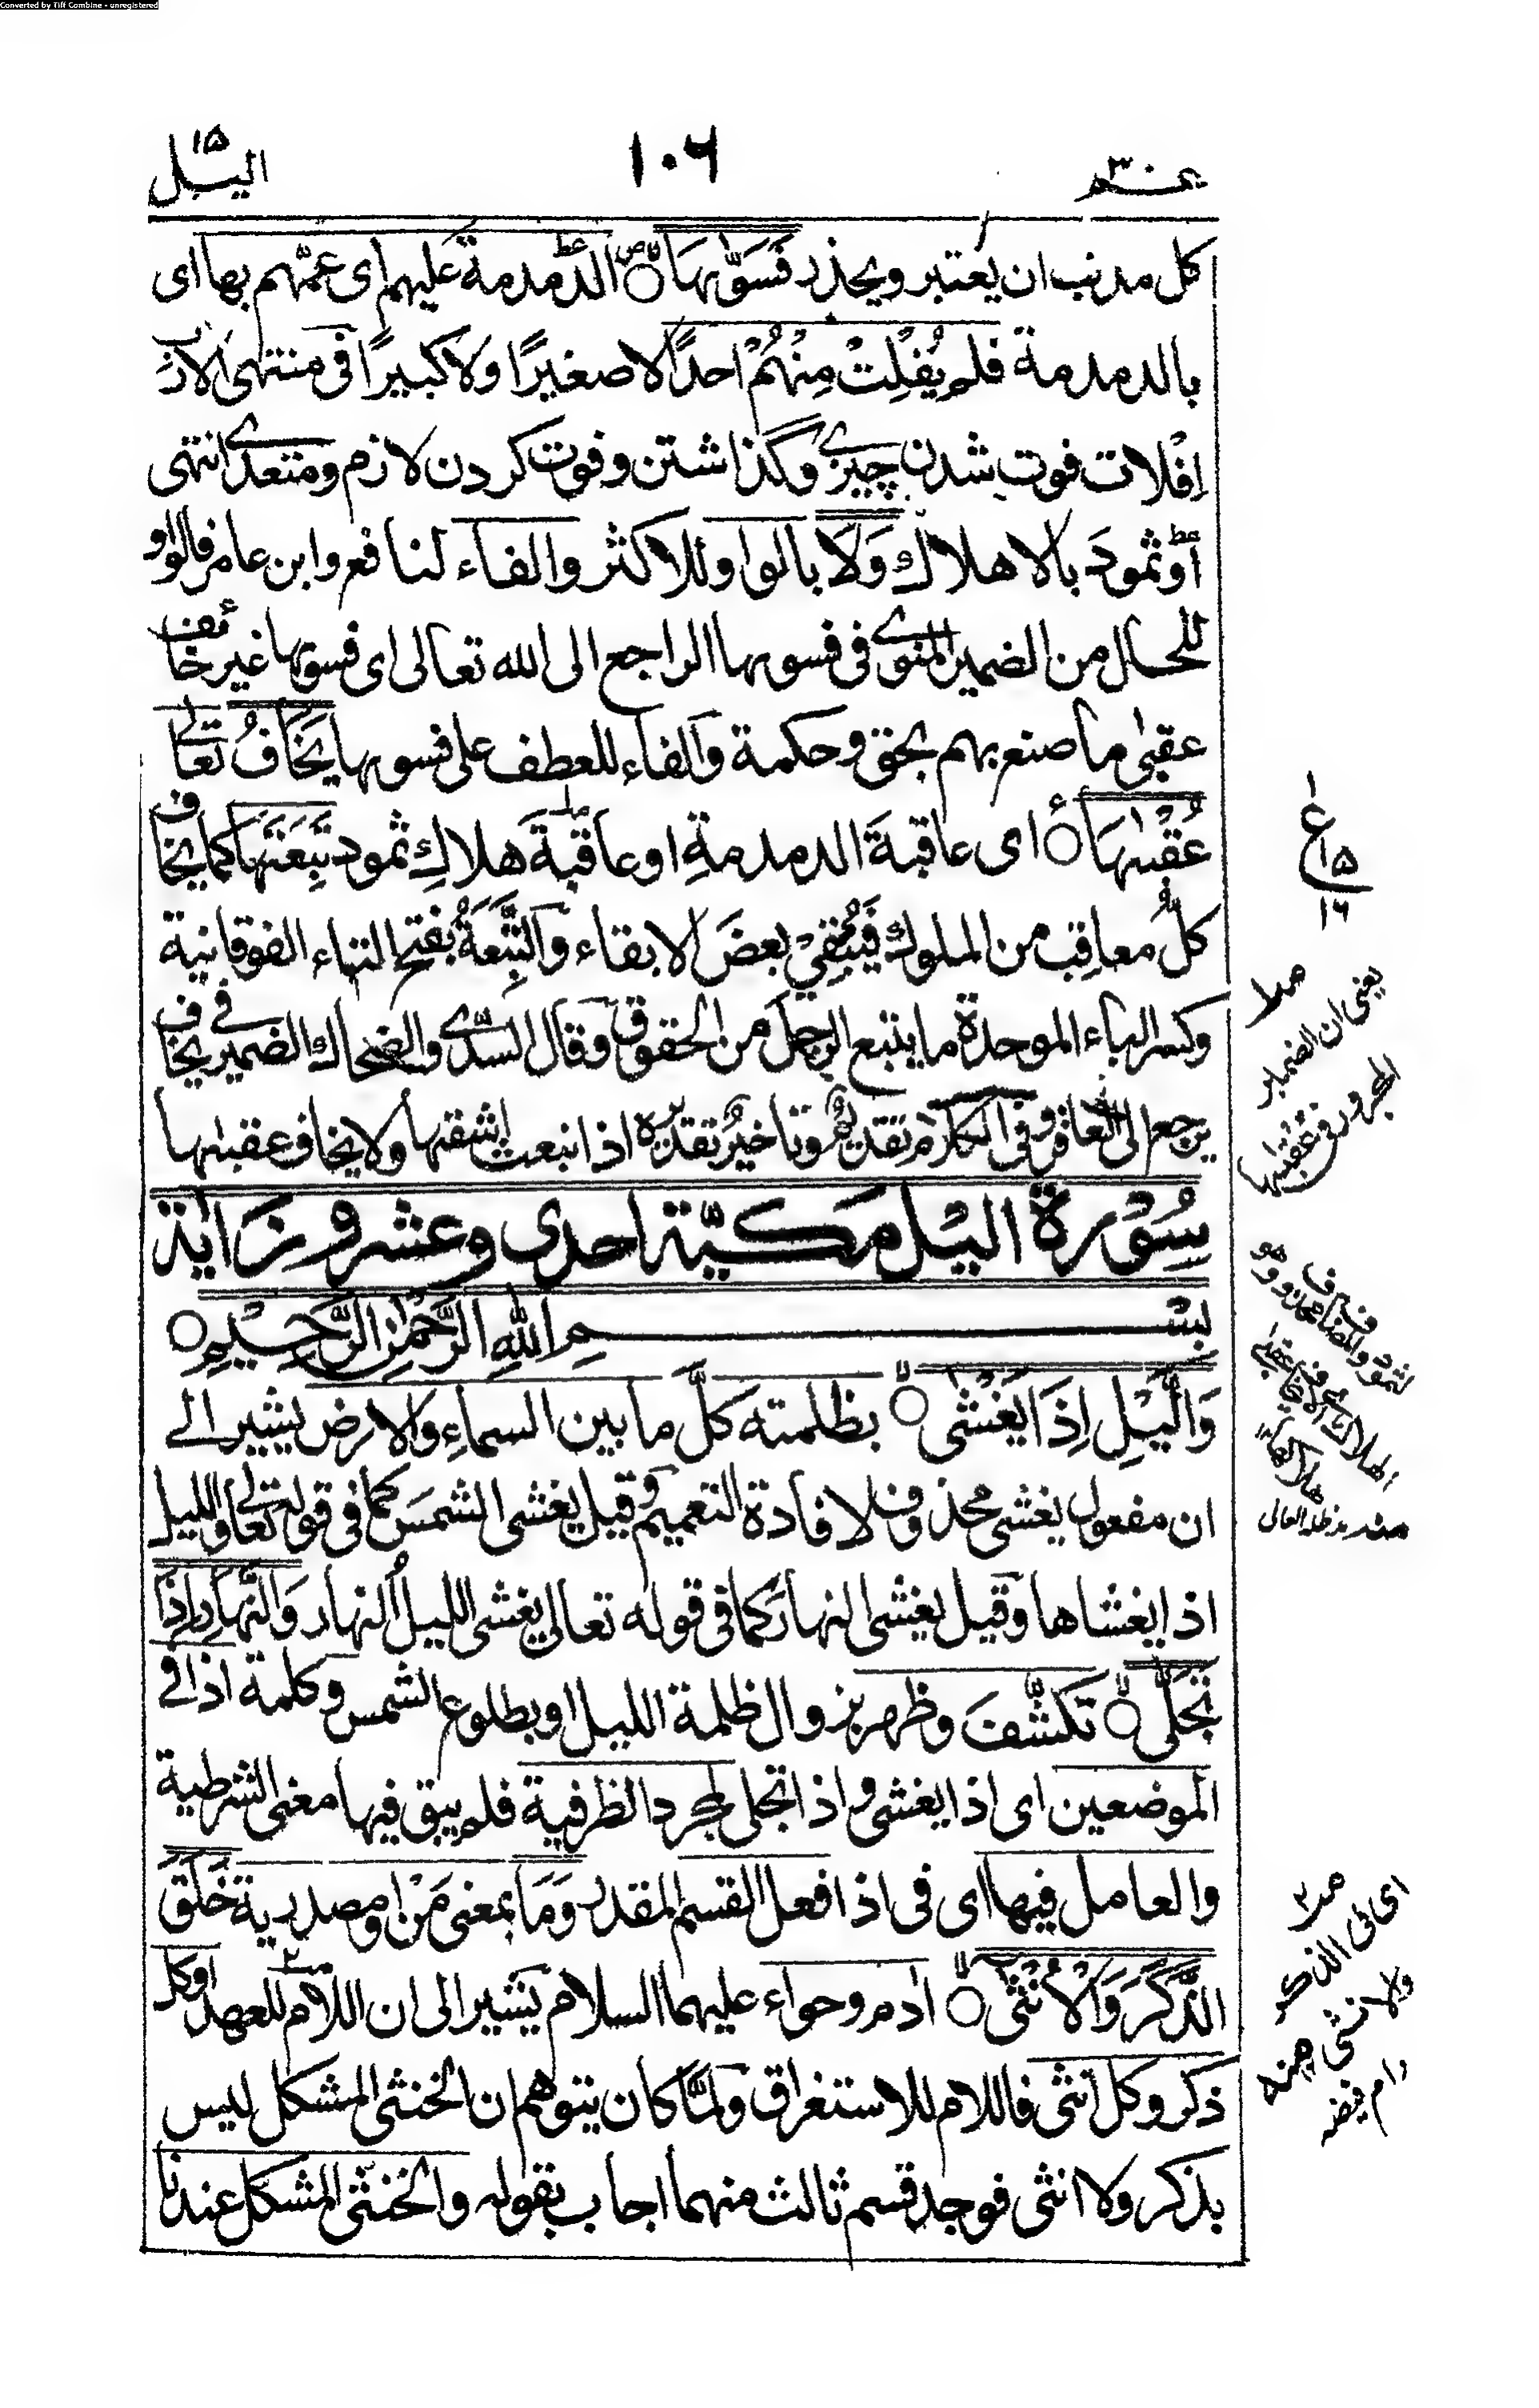 Converted by Tiff Combine - unregistered
عم ٣٠
١٠٦
اليل
كل مذنب ان يعتبر ويحذر فَسَوّٰىهَا الدمدمة عليهم اى عمّهم بها اى
بالدمدمة فلم يُفْلِتْ مِنْهُمْ احدًا لا صغيرًا ولا كبيرًا فى منتهى الارب
اِفْلات فوت شدن چيزى وگذاشتن وفوت كردن لازم ومتعدى انتهى
او ثمودَ بالاهلاك وَلَا بالواو للاكثر والفاء لنافع وابن عامر فالواو
للحال من الضمير المنوى فى فسوىها الراجع الى الله تعالى اى فسوىها غير خائف
عقبى ما صنع بهم بحق وحكمة والفاء للعطف على فسوىها يَخَافُ تعالى
عُقْبٰىهَا اى عاقبةَ الدمدمةِ او عاقبةَ هلاكِ ثمود تَبِعَتَهَا كما يخاف
كلُّ معاقِب من الملوك فَيُبْقِىْ بعضَ الابقاء والتَّبِعَةُ بفتح التاء الفوقانية
وكسر الباء الموحدة ما يتبع الرجل من الحقوق وقال السدّى والضحاك الضمير فى يخاف
يرجع الى العاقر وفى الكلام تقديم وتاخير تقديره اذ انبعث اشقٰها ولا يخاف عقبٰىها
سُوْرة اليل مكيّة احدى وعشرون اٰية
بِسْمِ اللهِ الرَّحْمٰنِ الرَّحِيْمِ
وَالَّيْلِ اِذَا يَغْشٰى بظلمته كلَّ ما بين السماءِ والارض يشير الى
ان مفعول يغشى محذوف لافادة التعميم وقيل يغشى الشمسَ كما فى قوله تعالى والليل
اذا يغشاها وقيل يغشى النهارَ كما فى قوله تعالى يغشى الليلُ النهار وَالنَّهَارِ اِذَا
تَجَلّٰى تَكَشَّفَ وظهر بزوال ظلمة الليل او بطلوع الشمس وكلمة اذا فى
الموضعين اى اذا يغشى واذا تجلى لمجرد الظرفية فلم يبق فيها معنى الشرطية
والعامل فيها اى فى اذا فعل القسم المقدر وَمَا بمعنى مَنْ او مصدرية خَلَقَ
الذَّكَرَ وَالْاُنْثٰى اٰدم وحواء عليهما السلام يشير الى ان اللام للعهد او كل
ذكر وكل انثى فاللام للاستغراق ولمّا كان يتوهم ان الخنثى المشكل ليس
بذكر ولا انثى فوجد قسم ثالث منهما اجاب بقوله والخنثى المشكل عندنا
ع
١٥
١٦
يعنى ان الضمير
المجرور فى عقبٰىها
اى فى الذكر
والانثى